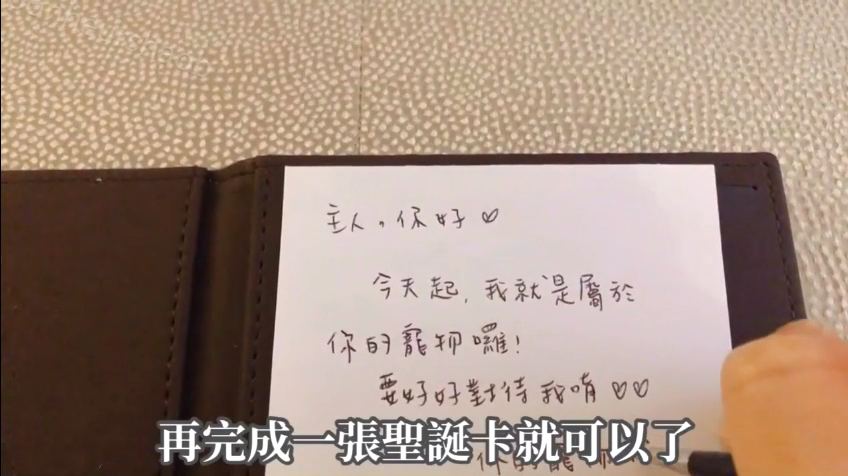 主人，你好♡
今天起，我就是屬於
你的寵物囉！
要好好對待我唷♡♡
你的寵
再完成一張聖誕卡就可以了